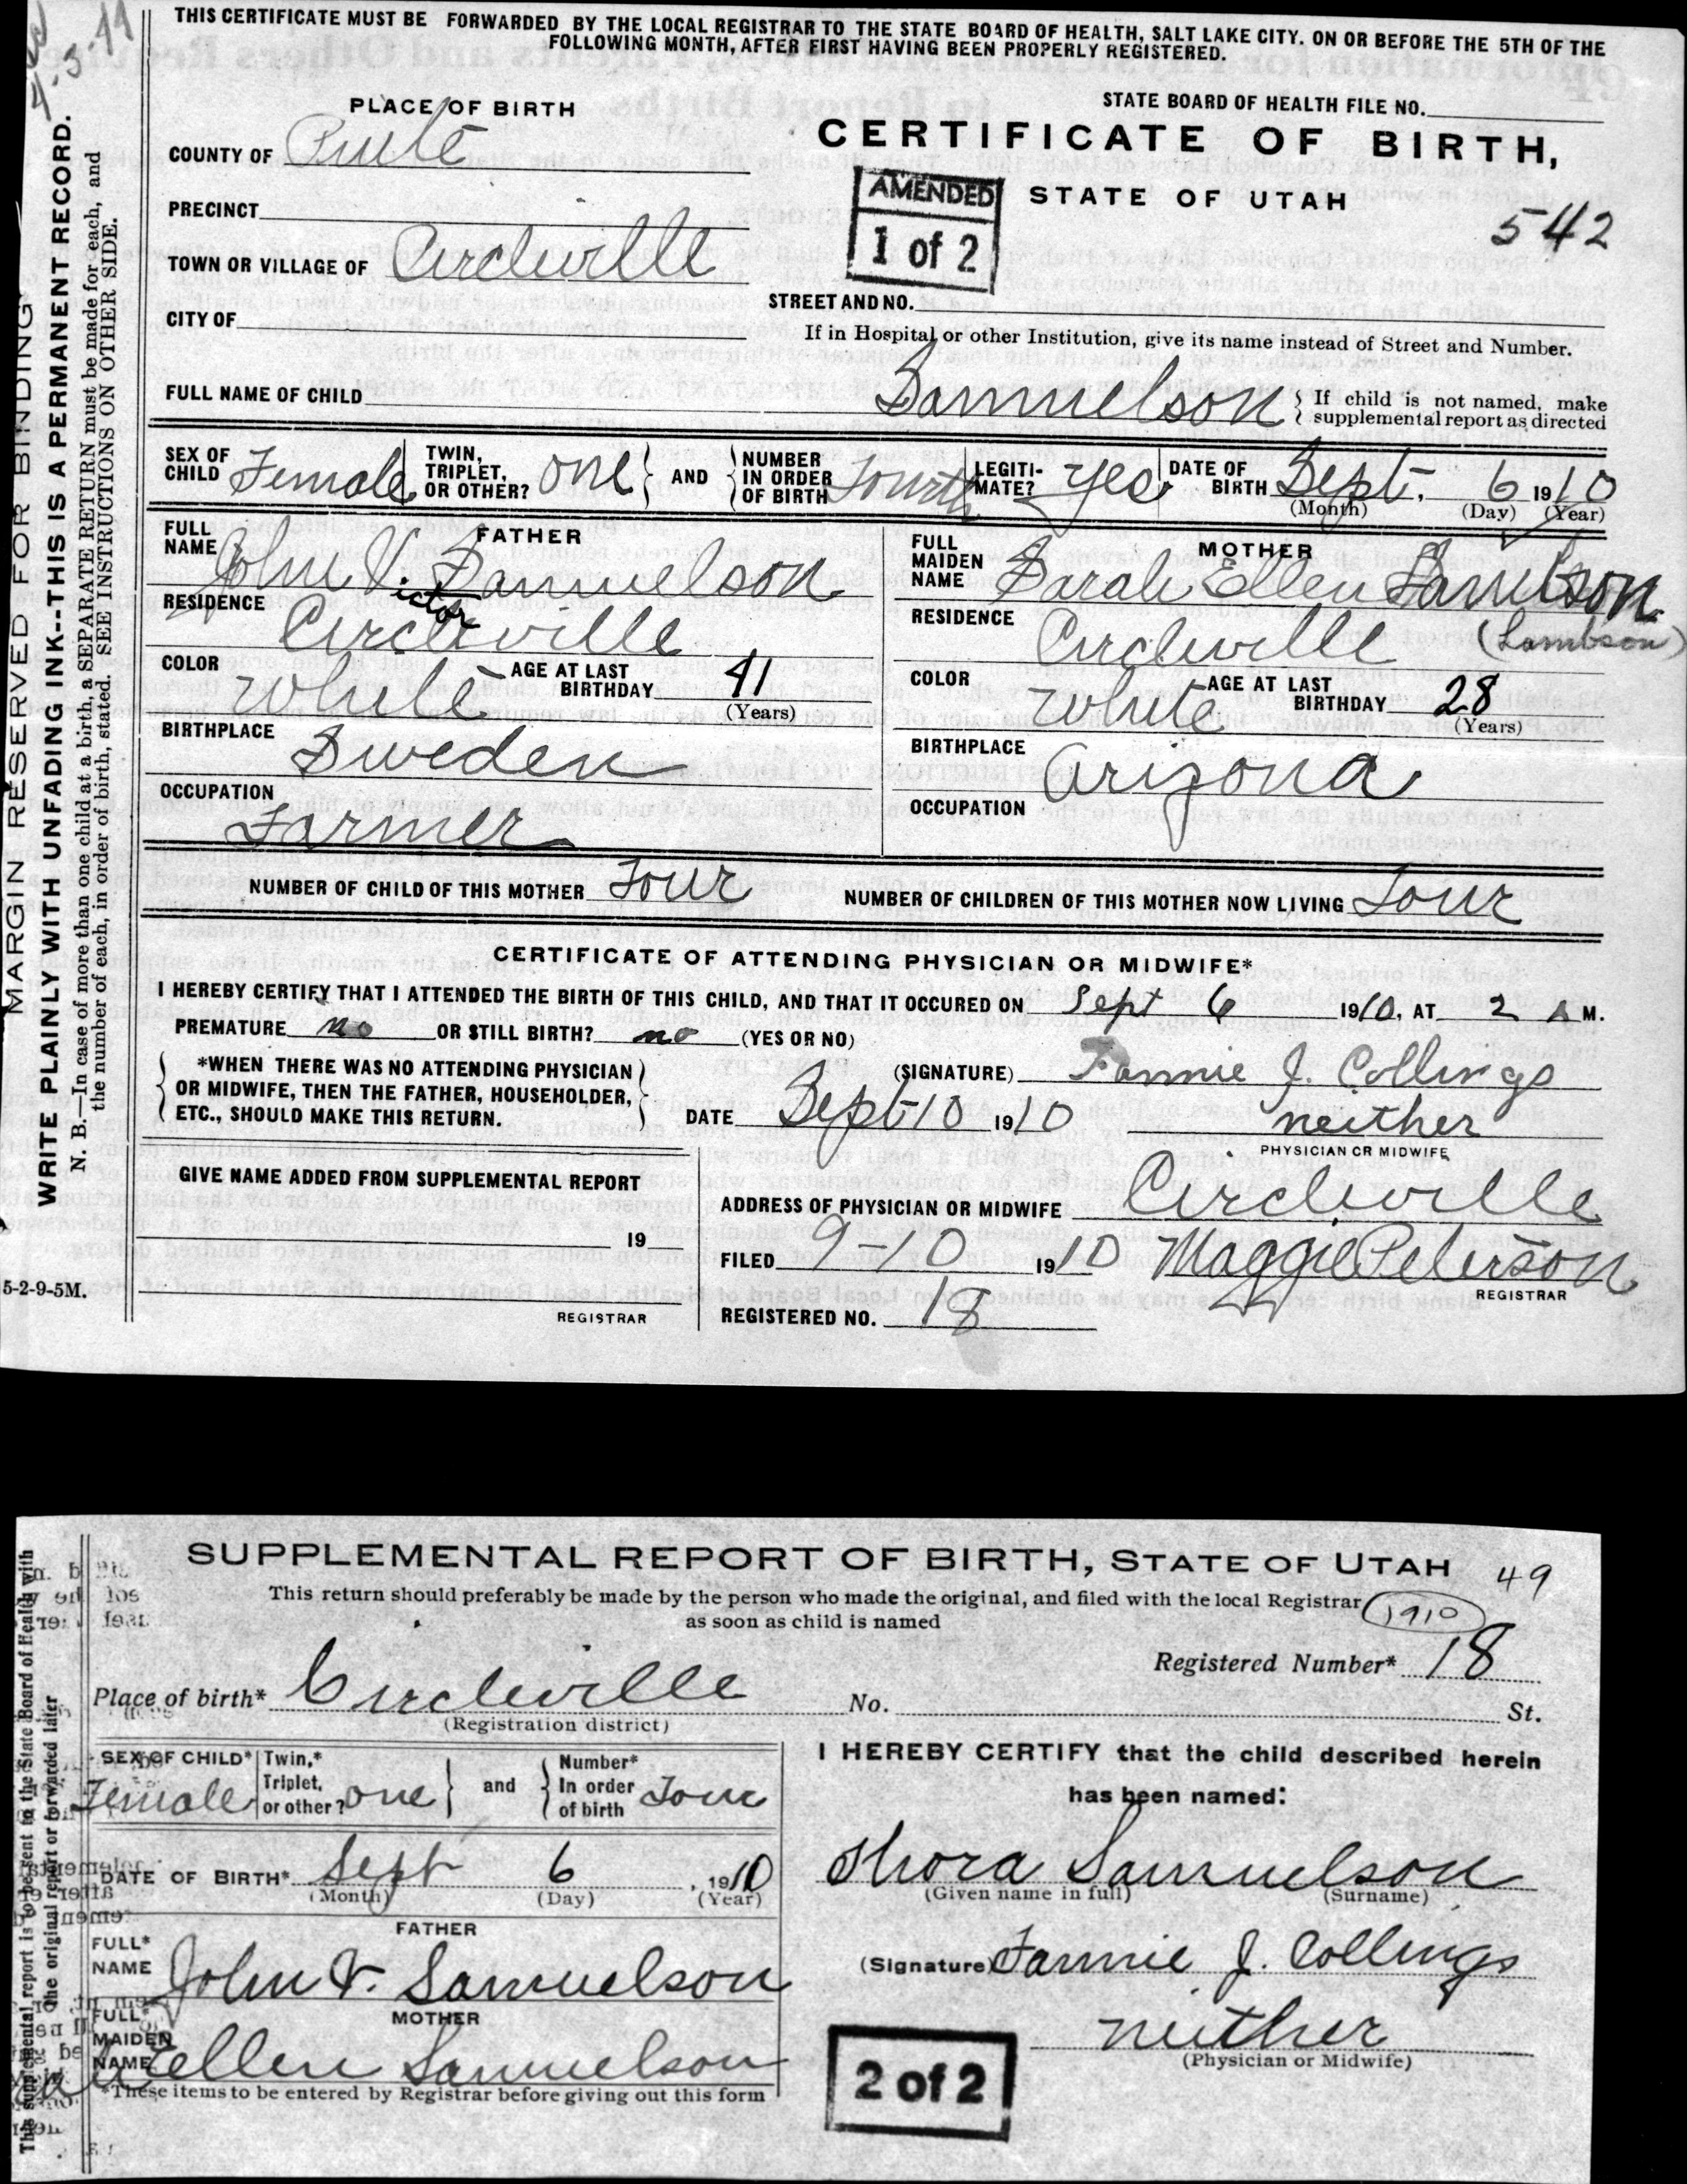 THIS CERTIFICATE MUST BE FORWARDED BY THE LOCAL REGISTRAR TO THE STATE BOARD OF HEALTH, SALT LAKE CITY. ON OR BEFORE THE 5TH OF THE
FOLLOWING MONTH, AFTER FIRST HAVING BEEN PROPERLY REGISTERED.
4-3-44
MARGIN RESERVED FOR BINDING
WRITE PLAINLY WITH UNFADING INK--THIS IS A PERMANENT RECORD.
N. B.—In case of more than one child at a birth, a SEPARATE RETURN must be made for each, and
the number of each, in order of birth, stated. SEE INSTRUCTIONS ON OTHER SIDE.
PLACE OF BIRTH
STATE BOARD OF HEALTH FILE NO.
CERTIFICATE OF BIRTH,
COUNTY OF Piute
AMENDED
1 of 2
STATE OF UTAH
542
PRECINCT
TOWN OR VILLAGE OF Circleville
STREET AND NO.
CITY OF
If in Hospital or other Institution, give its name instead of Street and Number.
FULL NAME OF CHILD Samuelson { If child is not named, make
supplemental report as directed
SEX OF CHILD Female TWIN, TRIPLET, OR OTHER? one } AND { NUMBER IN ORDER OF BIRTH Fourth LEGITI-MATE? yes. DATE OF BIRTH Sept. 6 1910
(Month) (Day) (Year)
FATHER
FULL NAME John V. Samuelson
ictor
RESIDENCE Circleville
COLOR White AGE AT LAST BIRTHDAY 41
(Years)
BIRTHPLACE Sweden
OCCUPATION Farmer
MOTHER
FULL MAIDEN NAME Sarah Ellen Samuelson
(Lambson)
RESIDENCE Circleville
COLOR White AGE AT LAST BIRTHDAY 28
(Years)
BIRTHPLACE Arizona
OCCUPATION
NUMBER OF CHILD OF THIS MOTHER Four NUMBER OF CHILDREN OF THIS MOTHER NOW LIVING Four
CERTIFICATE OF ATTENDING PHYSICIAN OR MIDWIFE*
I HEREBY CERTIFY THAT I ATTENDED THE BIRTH OF THIS CHILD, AND THAT IT OCCURED ON Sept 6 1910, AT 2 A M.
PREMATURE no OR STILL BIRTH? no (YES OR NO)
{ *WHEN THERE WAS NO ATTENDING PHYSICIAN
OR MIDWIFE, THEN THE FATHER, HOUSEHOLDER,
ETC., SHOULD MAKE THIS RETURN. }
(SIGNATURE) Fannie J. Collings
DATE Sept 10 1910 neither
PHYSICIAN OR MIDWIFE
GIVE NAME ADDED FROM SUPPLEMENTAL REPORT
19
REGISTRAR
ADDRESS OF PHYSICIAN OR MIDWIFE Circleville
FILED 9-10 1910 Maggie Peterson
REGISTRAR
REGISTERED NO. 18
5-2-9-5M.
SUPPLEMENTAL REPORT OF BIRTH, STATE OF UTAH 49
This return should preferably be made by the person who made the original, and filed with the local Registrar
as soon as child is named
1910
Registered Number* 18
Place of birth* Circleville No. St.
(Registration district)
SEX OF CHILD* Female Twin,* Triplet, or other? one } and { Number* In order of birth Four
DATE OF BIRTH* Sept 6, 1910
(Month) (Day) (Year)
FATHER
FULL* NAME John V. Samuelson
MOTHER
FULL* MAIDEN NAME Ellen Samuelson
*These items to be entered by Registrar before giving out this form
I HEREBY CERTIFY that the child described herein
has been named:
Thora Samuelson
(Given name in full) (Surname)
(Signature) Fannie J. Collings
neither
(Physician or Midwife)
2 of 2
This supplemental report is to be sent to the State Board of Health with
the original report or forwarded later